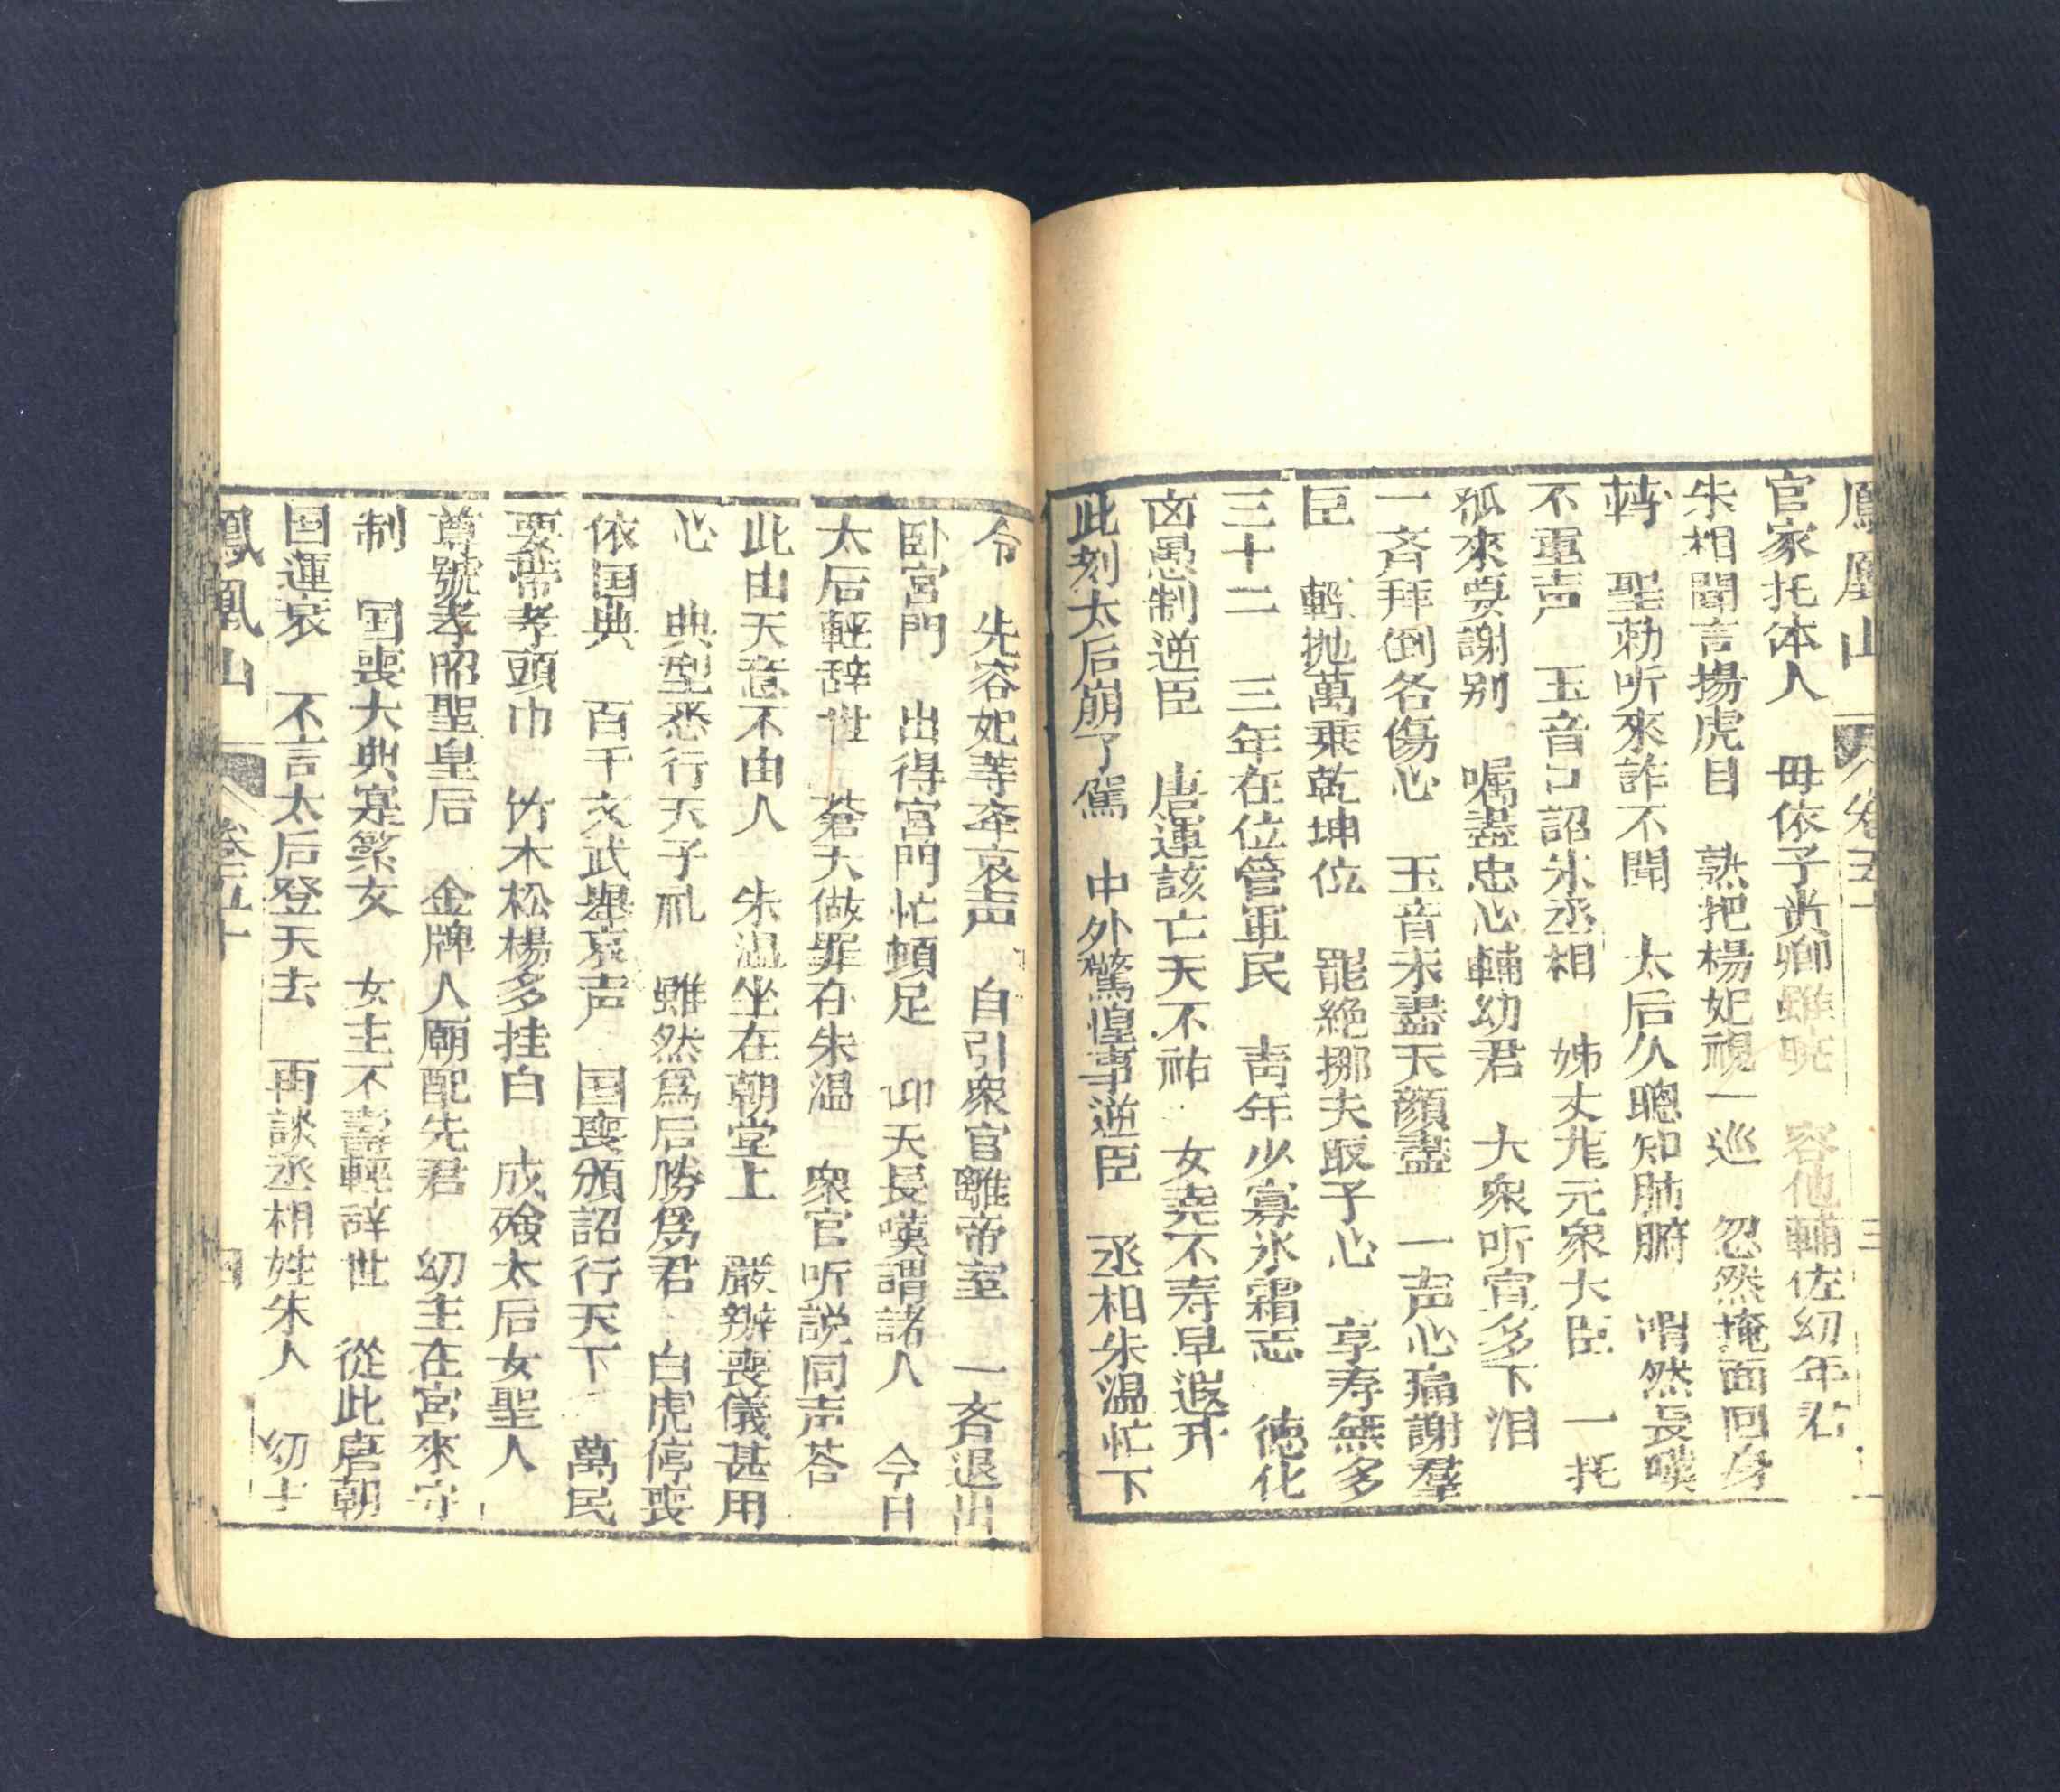 鳳凰山 卷五十 三
官家托体人 毋依子貴卿雖 容他輔佐幼年君
朱相聞言揚虎目 熟把楊妃視一巡 忽然掩面回身
轉 聖勅听來詐不聞 太后久聰知肺腑 喟然長嘆
不重声 玉音口詔朱丞相 姊丈 元衆大臣 一托
孤來要謝别 嘱盡忠心輔幼君 大衆听宣多下泪
一斉拜倒各傷心 玉音未盡天顔盡 一声心痛謝羣
臣 輕抛萬乗乾坤位 罷絶挪夫取子心 享寿無多
三十二 三年在位管軍民 青年少寡氷霜志 徳化
愚制逆臣 唐運該亡天不祐 女堯不寿早遐升
此刻太后崩了駕 中外驚惶事逆臣 丞相朱温忙下
令 先容妃等奔哀声 自引衆官離帝室 一斉退出
卧宮門 出得宮門忙頓足 仰天長嘆謂諸人 今日
太后輕辞世 蒼天做罪在朱温 衆官听説同声荅
此由天意不由人 朱温坐在朝堂上 嚴辦喪儀甚用
心 典型悉行天子礼 雖然爲后勝爲君 白虎停喪
依国典 百千文武舉哀声 国喪頒詔行天下 萬民
要帶孝頭巾 竹木松楊多挂白 成殮太后女聖人
尊號孝昭聖皇后 金牌人廟配先君 幼主在宮來守
制 国喪大典寔繁女 女主不壽輕辞世 從此唐朝
国運衰 不言太后登天去 再談丞相姓朱人 幼主
鳳凰山 卷五十 四